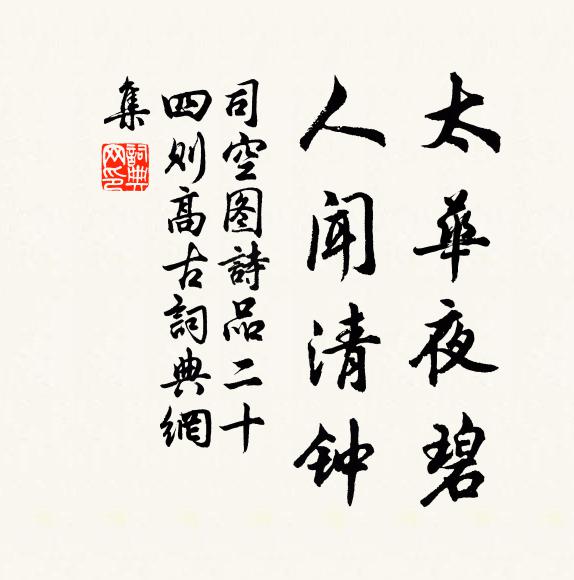 太華夜碧
人闻清钟
司空图詩品二十
四则高古詞典網
集
詞典
网印